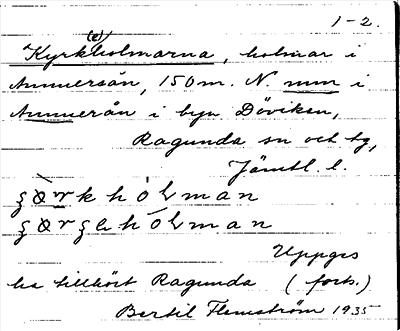 1-2.
Kyrk(e)holmarna, holmar i
Ammerån, 150 m. N. mm i
Ammerån i byn Döviken,
Ragunda sn och tg,
Jämtl. l.
hólman
hólman
Uppges
ha tillhört Ragunda (forts.)
Bertil Flemström 1935